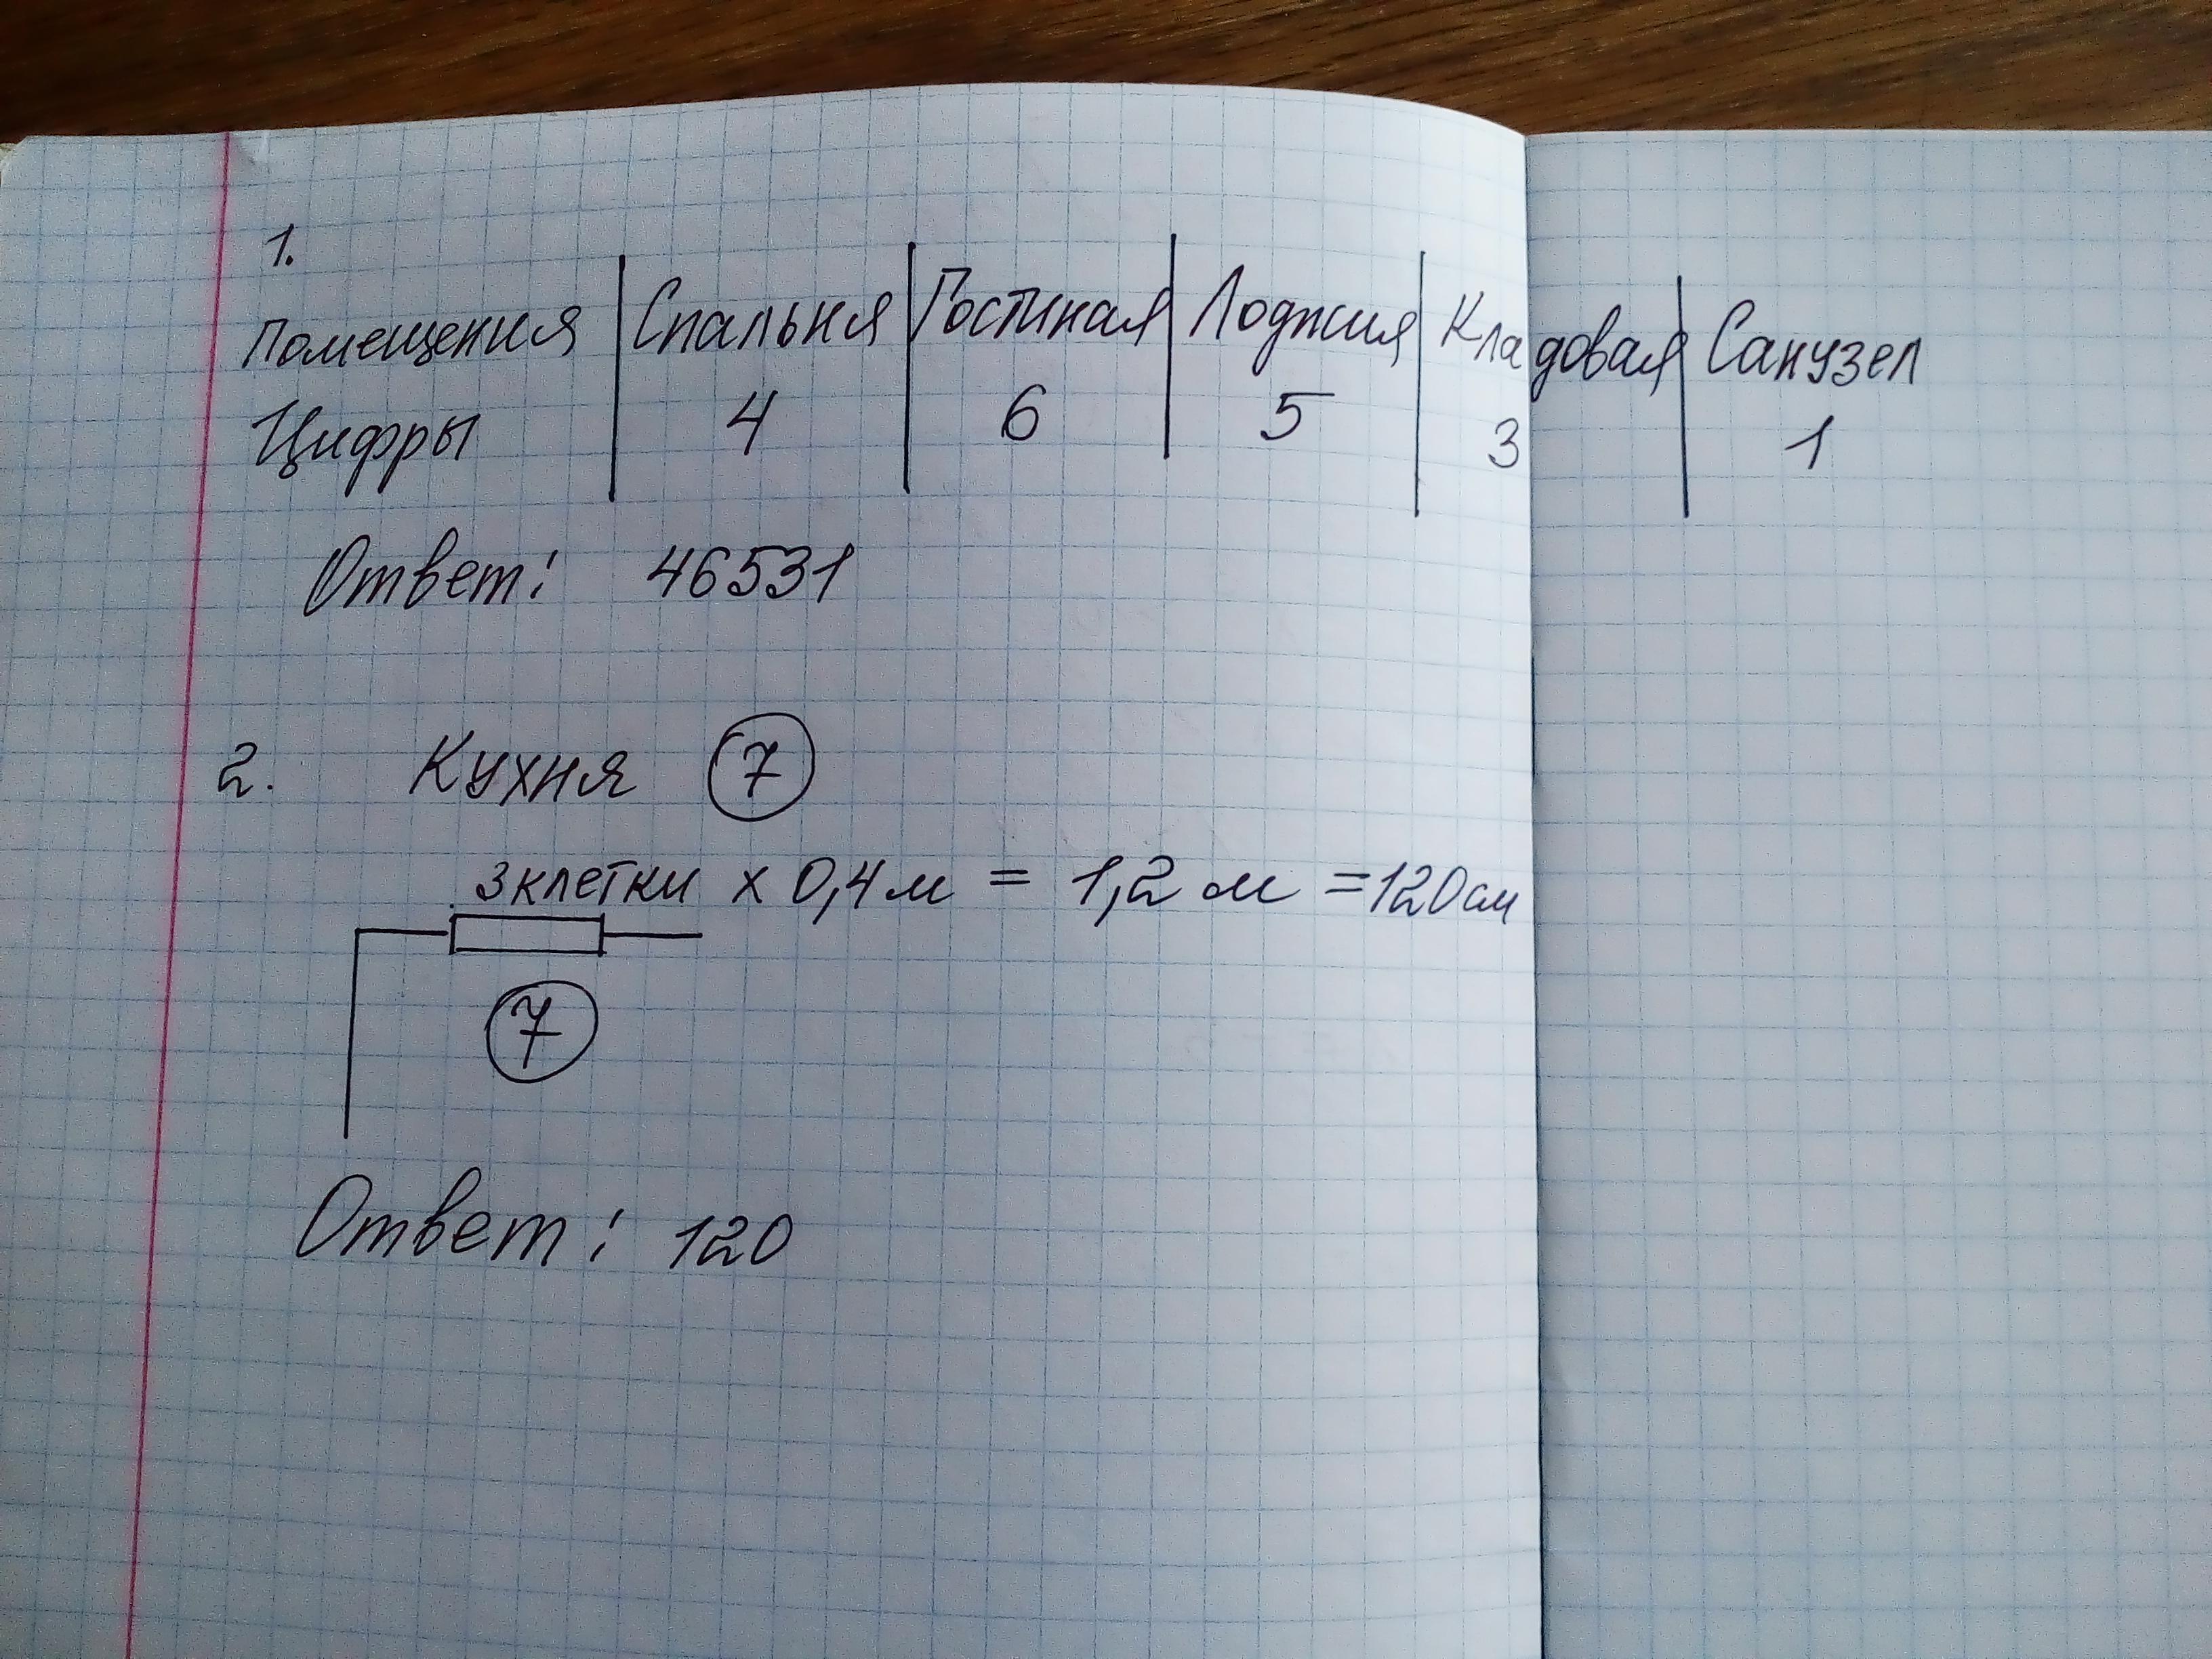 1.
Помещения | Спальня | Гостиная | Лоджия | Кладовая | Санузел
Цифры 4 6 5 3 1
Ответ: 46531
2. Кухня 7
3 клетки х 0,4 м = 1,2 м = 120 см
7
Ответ: 120